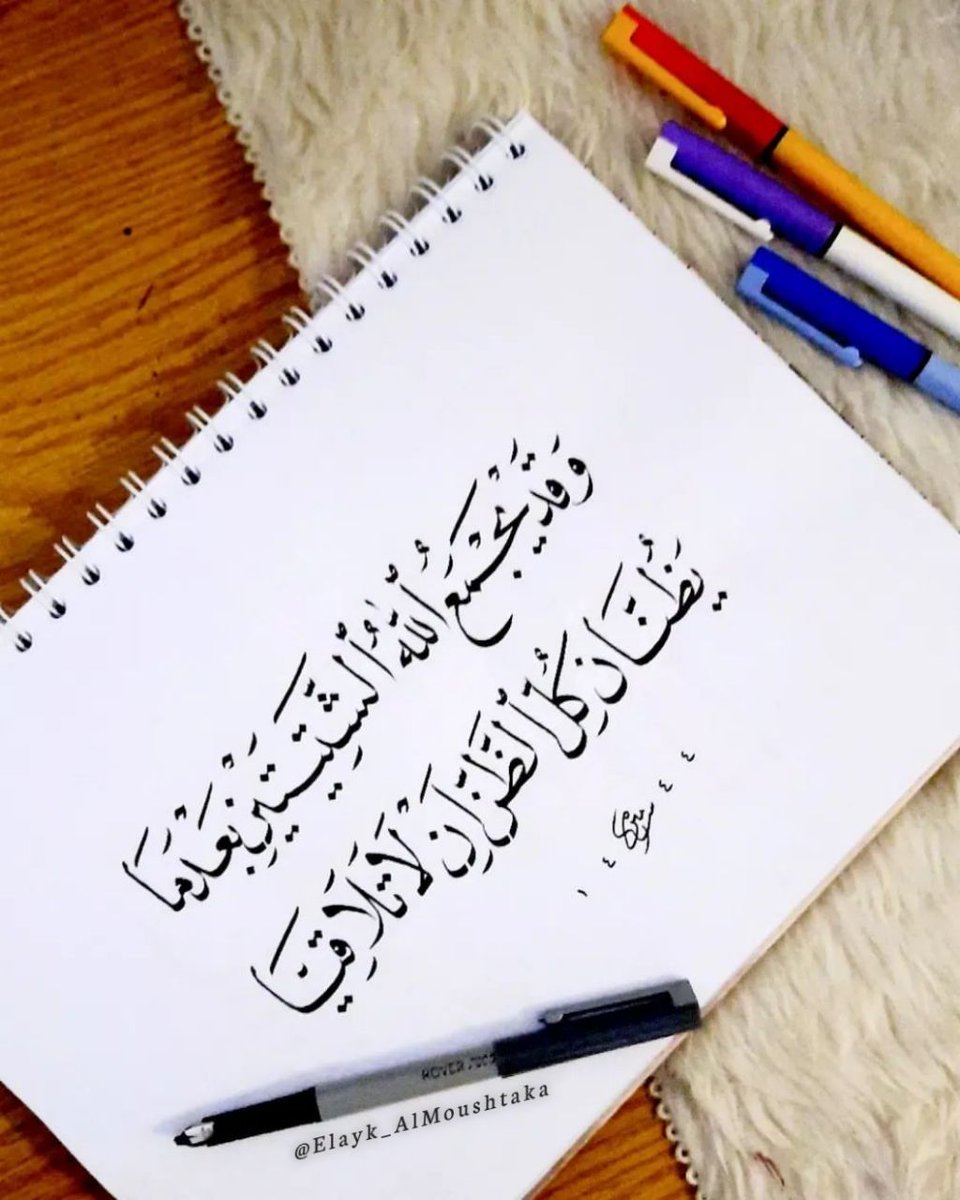 وَقَدْ يَجْمَعُ اُللّٰهُ اُلشَّتِيتَيْنِ بَعْدَمَا
يَظُنَّانِ كُلَّ اُلظَّنِّ أَنْ لَا تَلَاقِيَا
١٤٤٤
ROVER
@Elayk_AlMoushtaka